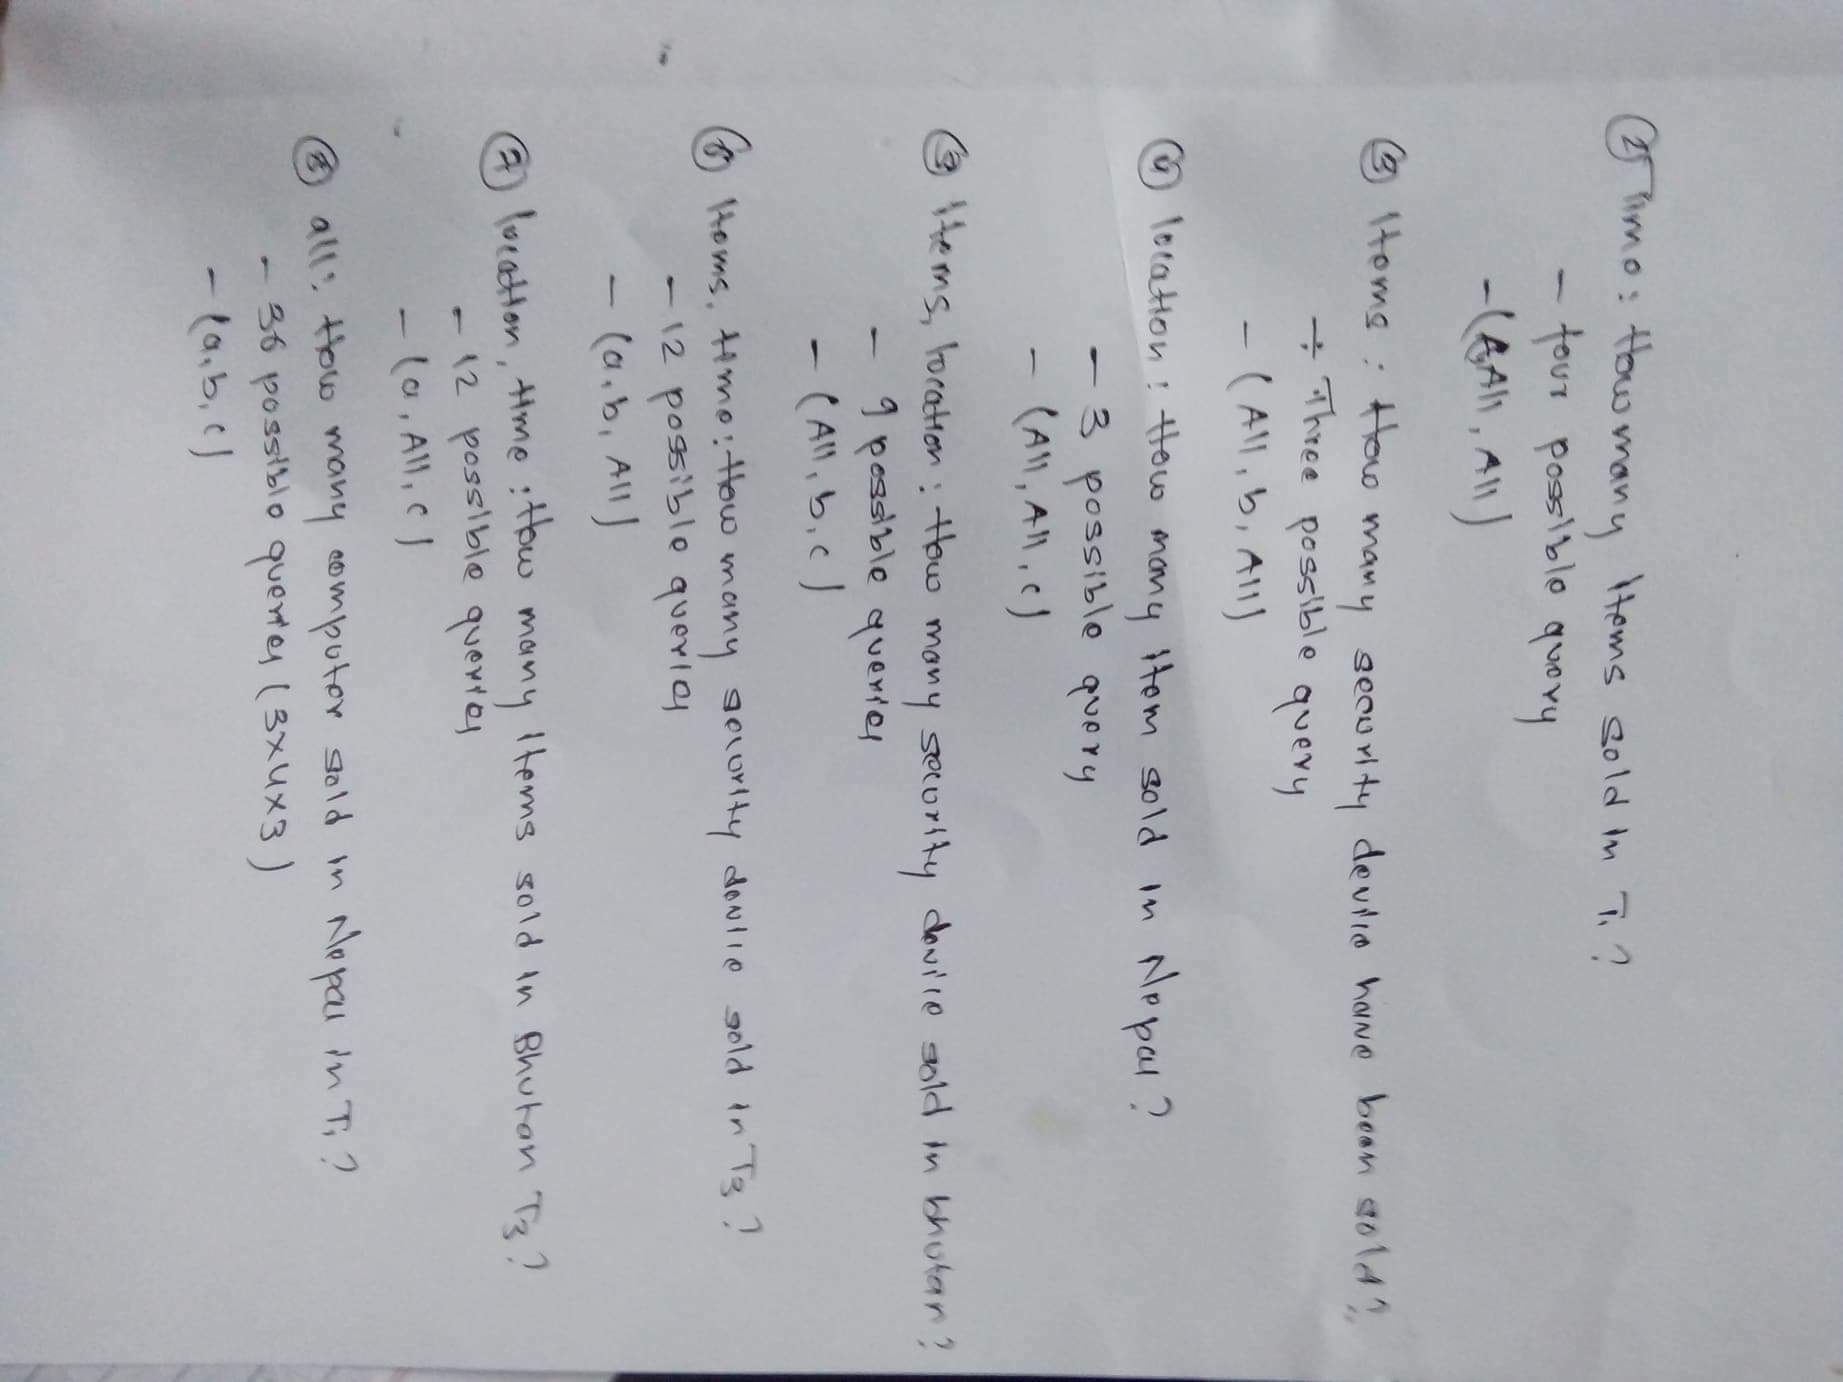 ② Time: How many items sold in T1?
- four possible query
- (a, All, All)
③ Items: How many security device have been sold?
- Three possible query
- (All, b, All)
④ location: How many item sold in Nepal?
- 3 possible query
- (All, All, c)
⑤ Items, location: How many security device sold in bhutan?
- 9 possible queries
- (All, b, c)
⑥ Items, time: How many security device sold in T3?
- 12 possible queries
- (a, b, All)
⑦ location, time: How many items sold in Bhutan T3?
- 12 possible queries
- (a, All, c)
⑧ all: How many computer sold in Nepal in T1?
- 36 possible queries (3x4x3)
- (a, b, c)